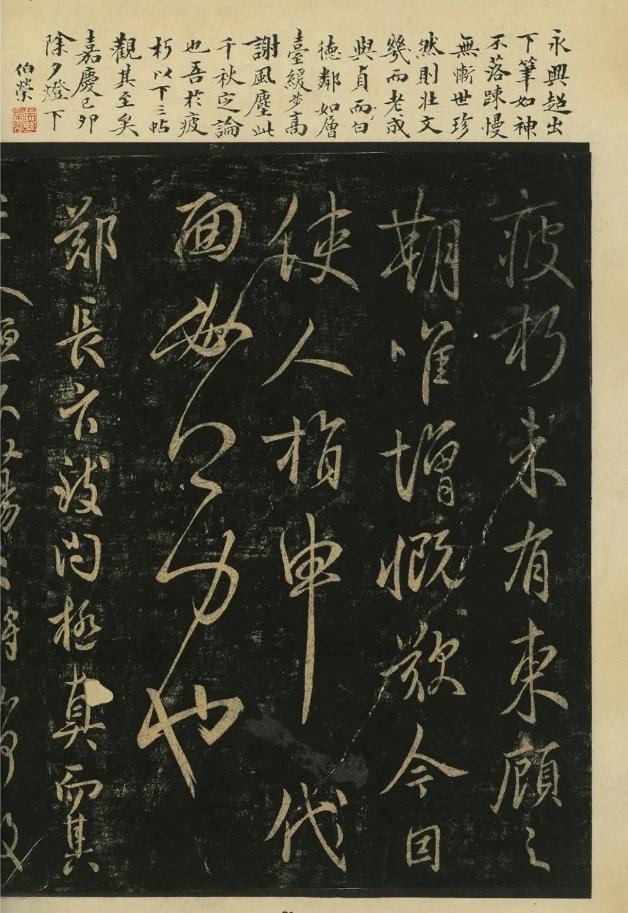 永興超出
下筆如神
不落疎慢
無慚世珍
然則壯文
幾而老成
與貞而白
德鄰如層
臺緩步高
謝風塵此
千秋定論
也吾於疲
朽以下三帖
觀其至矣
嘉慶己卯
除夕燈下
伯榮
疲朽未有東顧之
期唯增慨歎今因
使人指申代
面也
鄭長官致問極真而其